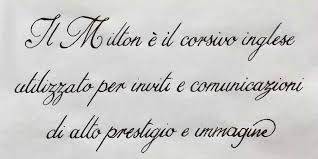 Il Milton è il corsivo inglese
utilizzato per inviti e comunicazioni
di alto prestigio e immagine